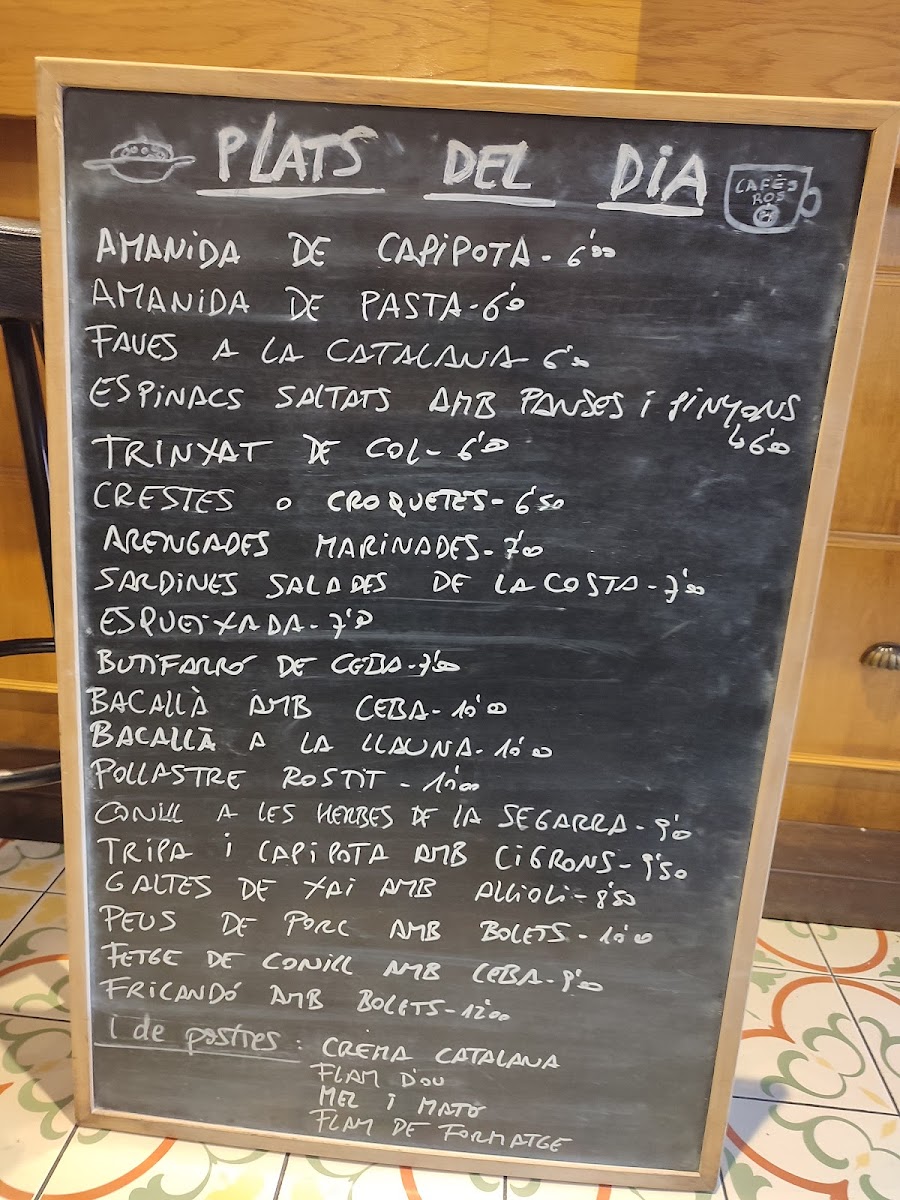 PLATS DEL DIA
CAFÈS
ROS
AMANIDA DE CAPIPOTA - 6'00
AMANIDA DE PASTA - 6'0
FAVES A LA CATALANA - 6'00
ESPINACS SALTATS AMB PANSES i PINYONS
↳ 6'00
TRINXAT DE COL - 6'00
CRESTES o CROQUETES - 6'50
ARENGADES MARINADES - 7'00
SARDINES SALADES DE LA COSTA - 7'00
ESQUEIXADA - 7'0
BUTIFARRÓ DE CEBA - 7'00
BACALLÀ AMB CEBA - 10'00
BACALLÀ A LA LLAUNA - 10'00
POLLASTRE ROSTIT - 10'00
CONILL A LES HERBES DE LA SEGARRA - 9'0
TRIPA i CAPIPOTA AMB CIGRONS - 9'50
GALTES DE XAI AMB ALLIOLI - 8'50
PEUS DE PORC AMB BOLETS - 10'00
FETGE DE CONILL AMB CEBA - 9'00
FRICANDÓ AMB BOLETS - 12'00
i de postres : CREMA CATALANA
FLAM D'OU
MEL i MATÓ
FLAM DE FORMATGE